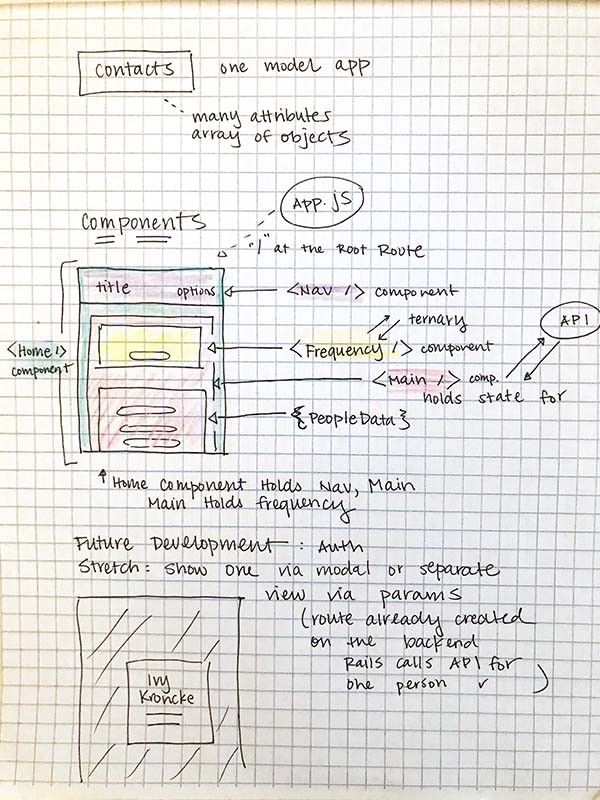 Contacts one model app
many attributes
array of objects
App.js
Components
"/" at the Root Route
title options
<Nav /> component
ternary
API
<Home />
component
<Frequency /> component
<Main /> comp.
holds state for
{PeopleData}
Home Component Holds Nav, Main
Main Holds frequency
Future Development: Auth
Stretch: Show one via modal or separate
view via params
(route already created
on the backend
Rails calls API for
one person ✓ )
Ivy
Kroncke